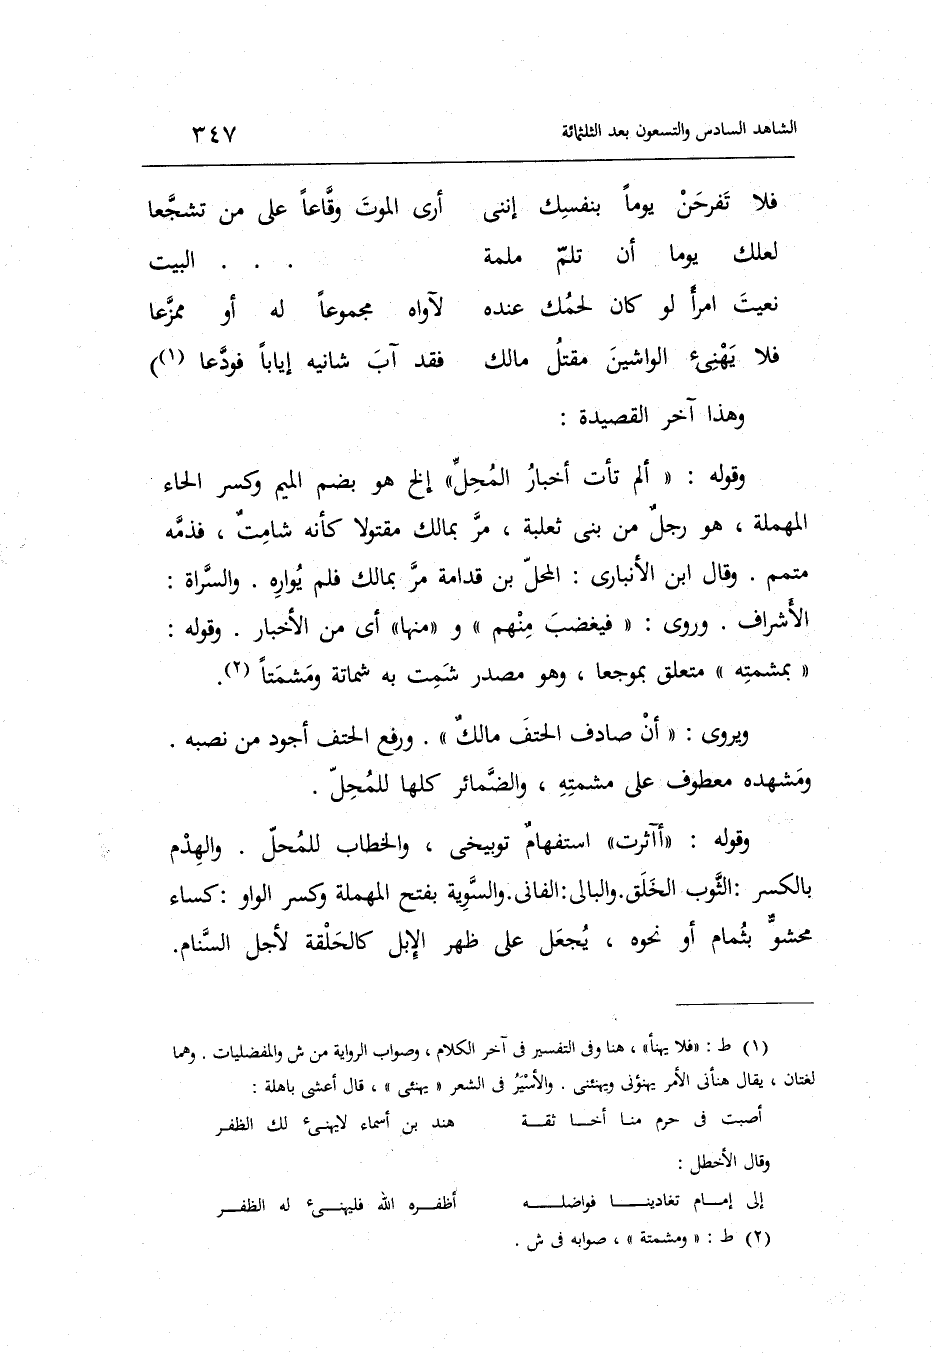 الشاهد السادس والتسعون بعد الثلثمائة ٣٤٧
فلا تَفرحَنْ يوماً بنفسِك إننى أرى الموتَ وقَّاعاً على من تشجَّعا
لعلك يوما أن تلمّ ملمة . . . البيت
نعيتَ امرأً لو كان لحمُك عنده لآواه مجموعاً له أو ممزَّعا
فلا يَهْنِئ الواشينَ مقتلُ مالك فقد آبَ شانيه إياباً فودَّعا (١))
وهذا آخر القصيدة :
وقوله : « ألم تأت أخبارُ المُحِلِّ» إلخ هو بضم الميم وكسر الحاء
المهملة ، هو رجلٌ من بنى ثعلبة ، مرَّ بمالك مقتولا كأنه شامِتٌ ، فذمَّه
متمم . وقال ابن الأنبارى : المحلّ بن قدامة مرَّ بمالك فلم يُوارِه . والسَّراة :
الأَشراف . وروى : « فيغضبَ مِنْهم » و «منها» أى من الأخبار . وقوله :
« بمشمتِه » متعلق بموجعا ، وهو مصدر شَمِت به شماتة ومَشمَتاً (٢).
ويروى : « أنْ صادف الحتفَ مالكٌ » . ورفع الحتف أجود من نصبه .
ومَشهده معطوف على مشمتِهِ ، والضَّمائر كلها للمُحِلّ .
وقوله : «أآثرت» استفهامٌ توبيخى ، والخطاب للمُحلّ . والهِدْم
بالكسر :الثَّوب الخَلَق.والبالى:الفانى.والسَّوِية بفتح المهملة وكسر الواو :كساء
محشوٌّ بثُمام أو نحوه ، يُجعَل على ظهر الإِبل كالحَلْقة لأجل السَّنام.
(١) ط : «فلا يهنأ» ، هنا وفى التفسير فى آخر الكلام ، وصواب الرواية من ش والمفضليات . وهما
لغتان ، يقال هنأنى الأمر يهنؤنى ويهنئنى . والأَسْيَرُ فى الشعر « يهنئى » ، قال أعشى باهلة :
أصبت فى حرم منا أخا ثقة هند بن أسماء لايهنىء لك الظفر
وقال الأخطل :
إلى إمام تغادينا فواضله أظفره الله فليهنىء له الظفر
(٢) ط : « ومشمتة » ، صوابه فى ش .